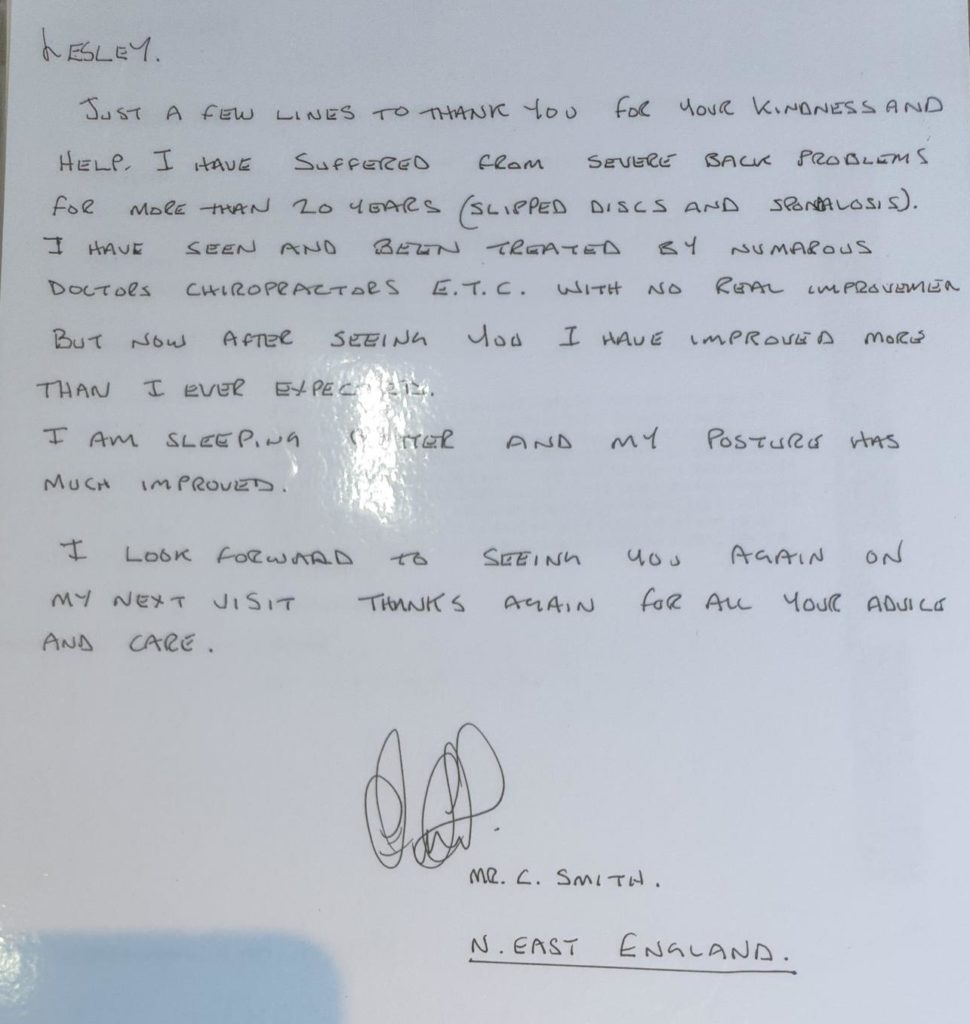 LESLEY.
JUST A FEW LINES TO THANK YOU FOR YOUR KINDNESS AND
HELP. I HAVE SUFFERED FROM SEVERE BACK PROBLEMS
FOR MORE THAN 20 YEARS (SLIPPED DISCS AND SPONDALOSIS).
I HAVE SEEN AND BEEN TREATED BY NUMAROUS
DOCTORS CHIROPRACTORS E.T.C. WITH NO REAL IMPROVEMEN
BUT NOW AFTER SEEING YOU I HAVE IMPROVED MORE
THAN I EVER EXPECTED.
I AM SLEEPING BETTER AND MY POSTURE HAS
MUCH IMPROVED.
I LOOK FORWARD TO SEEING YOU AGAIN ON
MY NEXT VISIT THANKS AGAIN FOR ALL YOUR ADVICE
AND CARE.
MR. C. SMITH.
N. EAST ENGLAND.